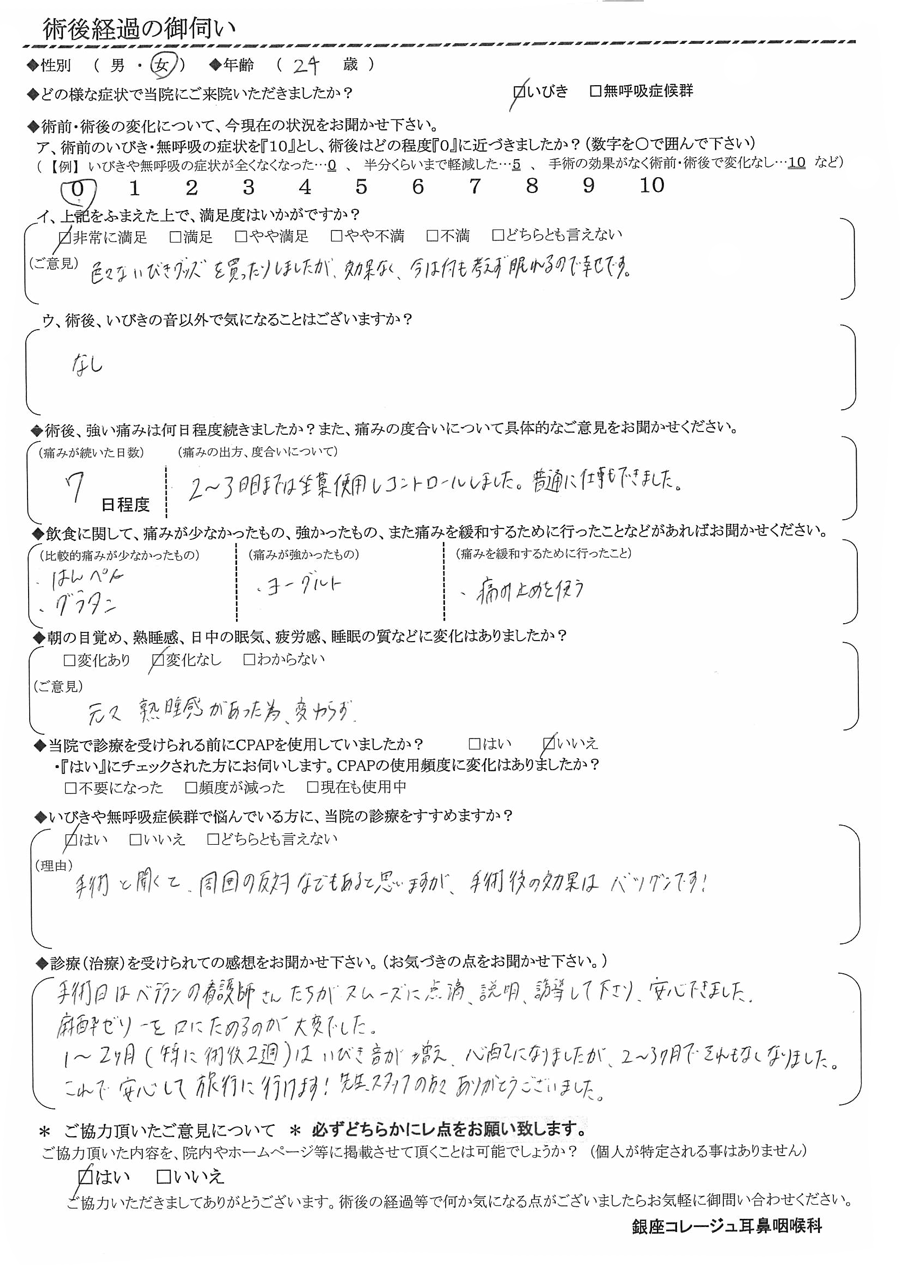 術後経過の御伺い
◆性別 ( 男 ・ 女 ) ◆年齢 ( 24 歳 )
◆どの様な症状で当院にご来院いただきましたか? ☑いびき □無呼吸症候群
◆術前・術後の変化について、今現在の状況をお聞かせ下さい。
ア、術前のいびき・無呼吸の症状を『10』とし、術後はどの程度『0』に近づきましたか?(数字を〇で囲んで下さい)
(【例】いびきや無呼吸の症状が全くなくなった…0 、 半分くらいまで軽減した…5 、 手術の効果がなく術前・術後で変化なし…10 など)
0 1 2 3 4 5 6 7 8 9 10
イ、上記をふまえた上で、満足度はいかがですか?
☑非常に満足 □満足 □やや満足 □やや不満 □不満 □どちらとも言えない
(ご意見) 色々ないびきグッズを買ったりしましたが、効果なく、今は何も考えず眠れるので幸せです。
ウ、術後、いびきの音以外で気になることはございますか?
なし
◆術後、強い痛みは何日程度続きましたか?また、痛みの度合いについて具体的なご意見をお聞かせください。
(痛みが続いた日数) (痛みの出方、度合いについて)
7 日程度 2〜3日目までは坐薬使用しコントロールしました。普通に仕事もできました。
◆飲食に関して、痛みが少なかったもの、強かったもの、また痛みを緩和するために行ったことなどがあればお聞かせください。
(比較的痛みが少なかったもの) (痛みが強かったもの) (痛みを緩和するために行ったこと)
・はんぺん ・ヨーグルト ・痛み止めを使う
・グラタン
◆朝の目覚め、熟睡感、日中の眠気、疲労感、睡眠の質などに変化はありましたか?
□変化あり ☑変化なし □わからない
(ご意見)
元々 熟睡感があった為、変わらず.
◆当院で診療を受けられる前にCPAPを使用していましたか? □はい ☑いいえ
・『はい』にチェックされた方にお伺いします。CPAPの使用頻度に変化はありましたか?
□不要になった □頻度が減った □現在も使用中
◆いびきや無呼吸症候群で悩んでいる方に、当院の診療をすすめますか?
☑はい □いいえ □どちらとも言えない
(理由) 手術と聞くて、周囲の反対などもあると思いますが、手術後の効果は バツグンです!
◆診療(治療)を受けられての感想をお聞かせ下さい。(お気づきの点をお聞かせ下さい。)
手術日はベテランの看護師さんたちがスムーズに点滴、説明、誘導して下さり、安心できました.
麻酔ゼリーを口にためるのが大変でした。
1〜2ヶ月(特に術後2週)はいびき音が増え、心配になりましたが、2〜3ヶ月でそれもなくなりました。
これで安心して旅行に行けます!先生、スタッフの方々ありがとうございました。
* ご協力頂いたご意見について * 必ずどちらかにレ点をお願い致します。
ご協力頂いた内容を、院内やホームページ等に掲載させて頂くことは可能でしょうか? (個人が特定される事はありません)
☑はい □いいえ
ご協力いただきましてありがとうございます。術後の経過等で何か気になる点がございましたらお気軽に御問い合わせください。
銀座コレージュ耳鼻咽喉科